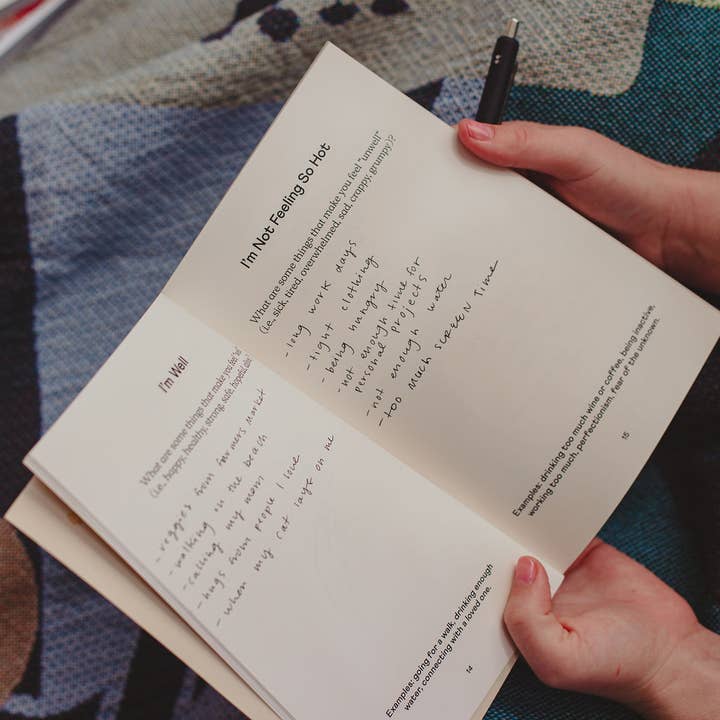 I'm Well
What are some things that make you feel "well"
(i.e., happy, healthy, strong, safe, hopeful, etc.
- veggies from farmers market
- walking on the beach
- calling my mom
- hugs from people I love
- when my cat lays on me
Examples: going for a walk, drinking enough
water, connecting with a loved one.
14
I'm Not Feeling So Hot
What are some things that make you feel "unwell"
(i.e., sick, tired, overwhelmed, sad, crappy, grumpy)?
- long work days
- tight clothing
- being hungry
- not enough time for
personal projects
- not enough water
- too much SCREEN TIME
Examples: drinking too much wine or coffee, being inactive,
working too much, perfectionism, fear of the unknown.
15